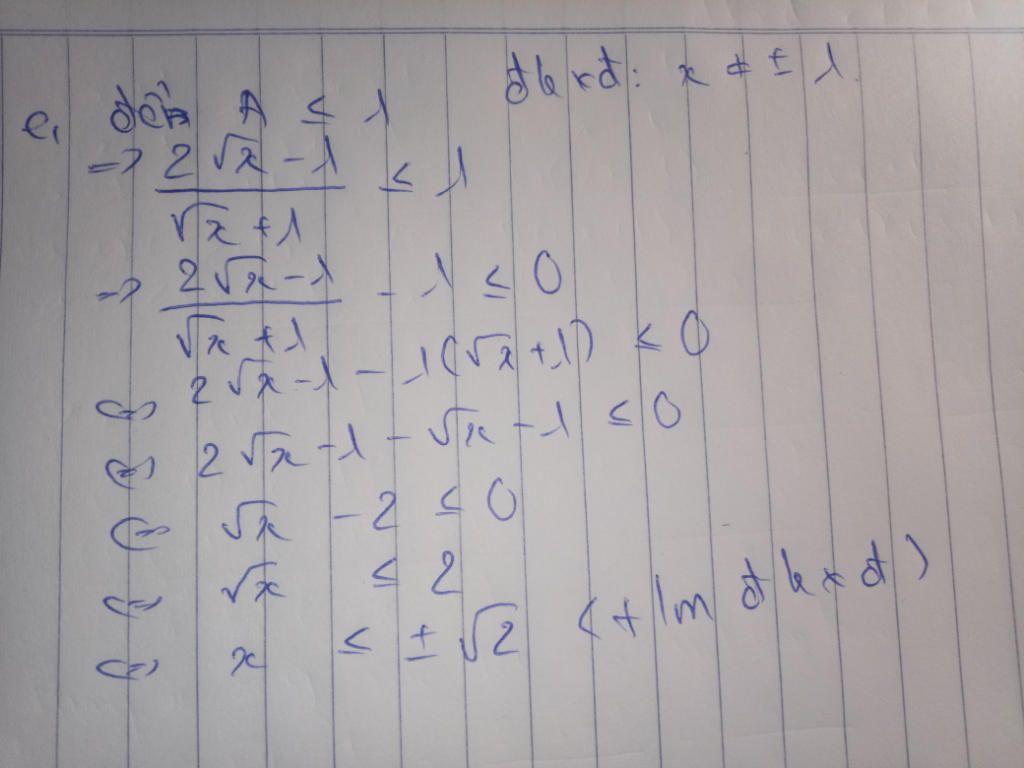 đkxđ: x ≠ ± 1.
c, để A ≤ 1
=> (2√x - 1)/(√x + 1) ≤ 1
=> (2√x - 1)/(√x + 1) - 1 ≤ 0
<=> 2√x - 1 - 1(√x + 1) ≤ 0
<=> 2√x - 1 - √x - 1 ≤ 0
<=> √x - 2 ≤ 0
<=> √x ≤ 2
<=> x ≤ ± √2 (t/m đkxđ)